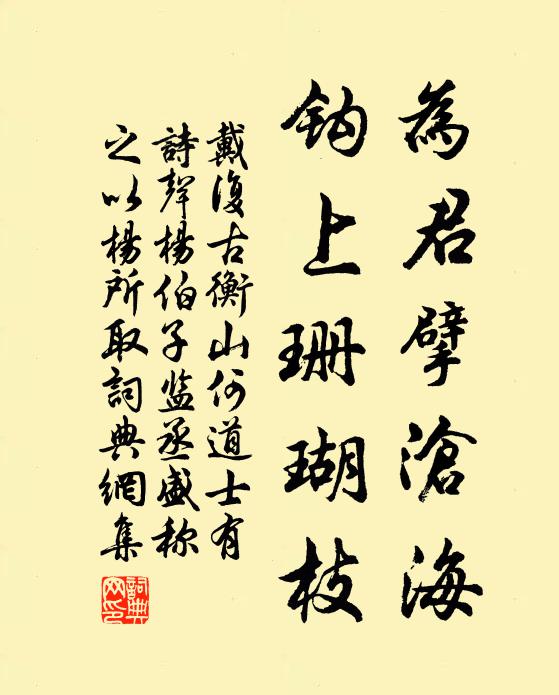 為君擘滄海
鈎上珊瑚枝
戴復古衡山何道士有
詩聲楊伯子监丞盛称
之以楊所取詞典網集
詞典網印